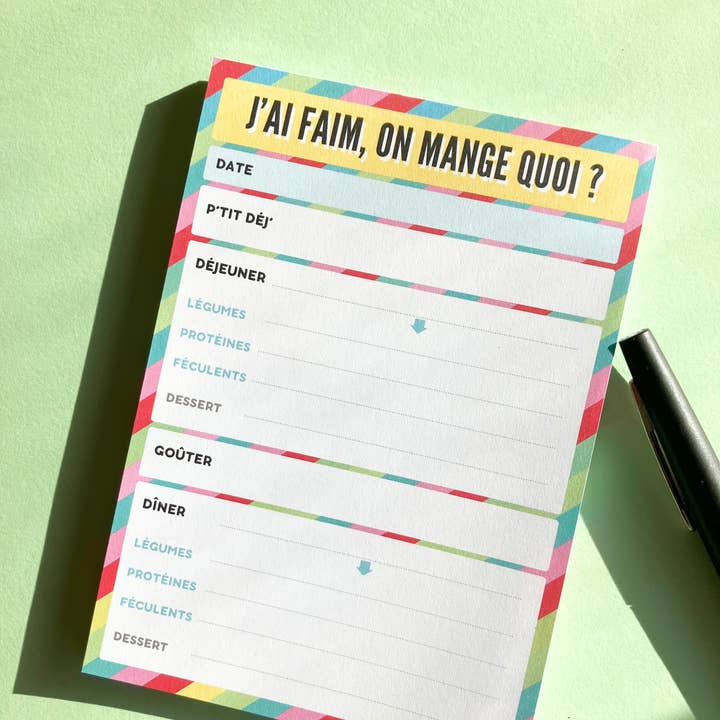 J'AI FAIM, ON MANGE QUOI ?
DATE
P'TIT DÉJ'
DÉJEUNER
LÉGUMES
PROTÉINES
FÉCULENTS
DESSERT
GOÛTER
DÎNER
LÉGUMES
PROTÉINES
FÉCULENTS
DESSERT